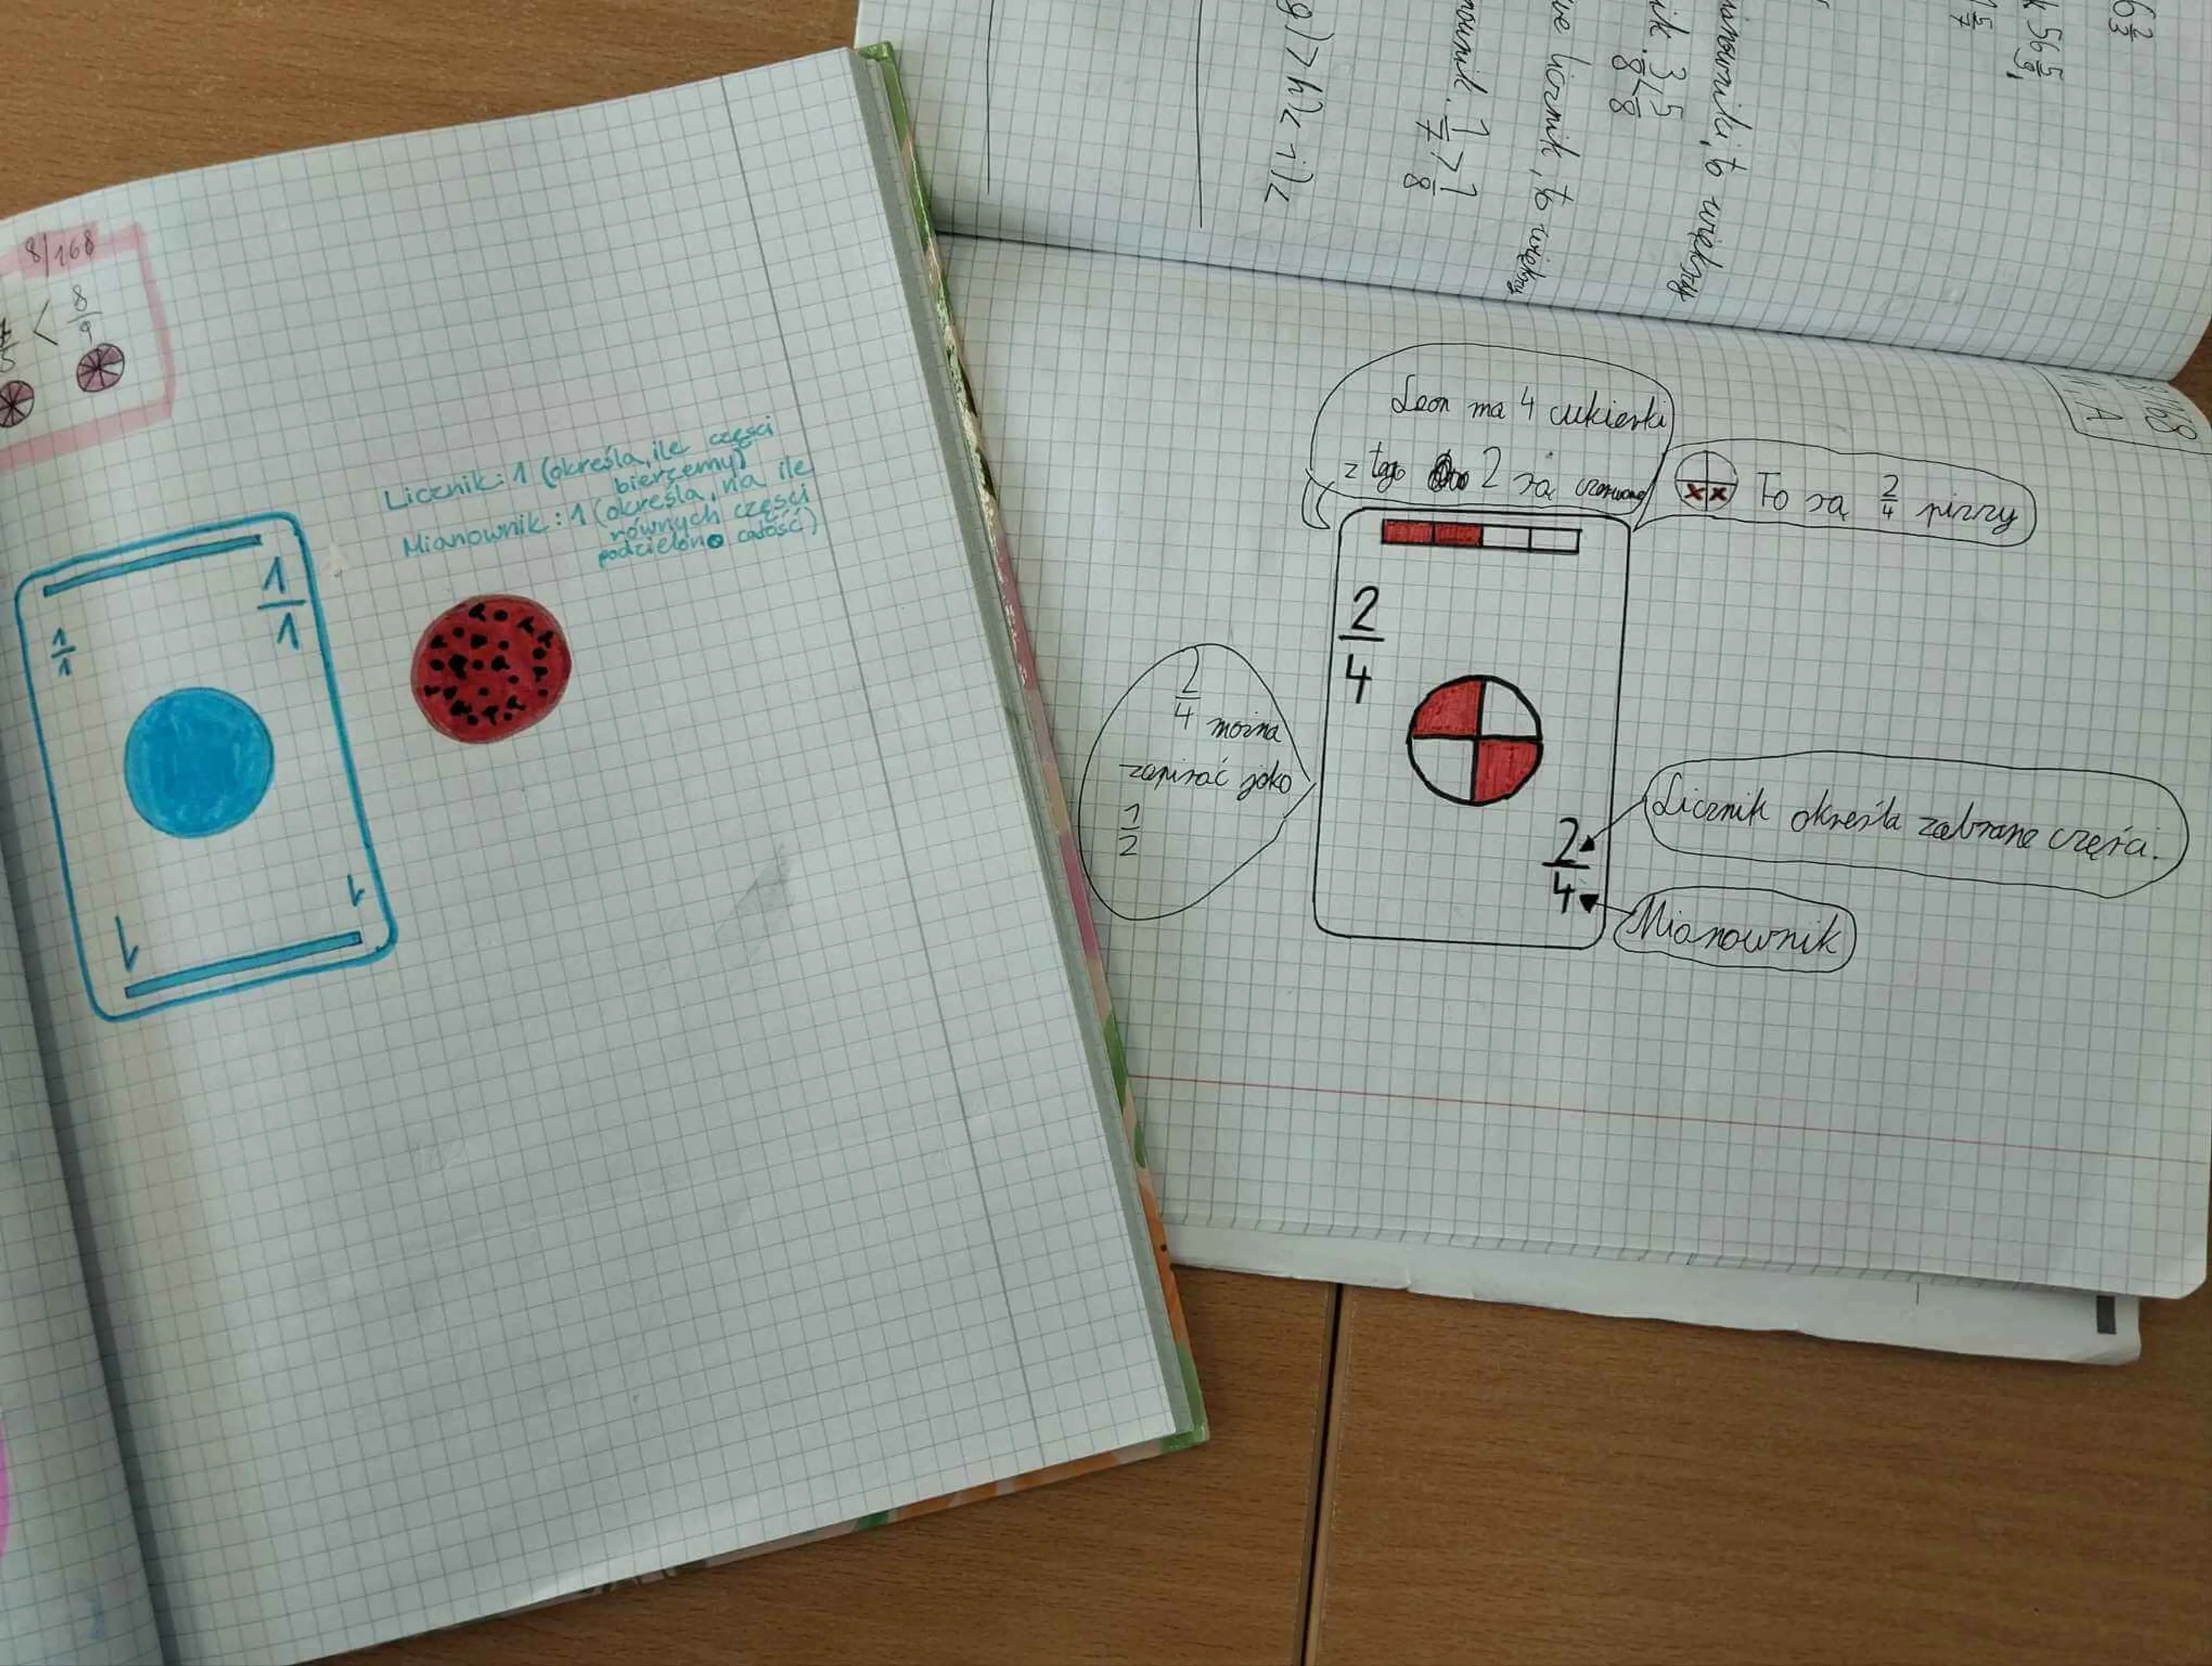 8/168
< 8/9
Licznik: 1 (określa, ile części
bierzemy)
Mianownik: 1 (określa, na ile
równych części
podzielono całość)
1/1
1/1
1
1
6 2/3
56 5/9
5/7
mianowniki, to większy
3/8 < 5/8
licznik, to większy
1/7 > 1/8
g) > h) < i) <
8/168
Leon ma 4 cukierki
z tego 2 są czerwone
To są 2/4 pizzy
2/4
2/4 można
zapisać jako
1/2
Licznik określa zabrane części.
2/4
Mianownik